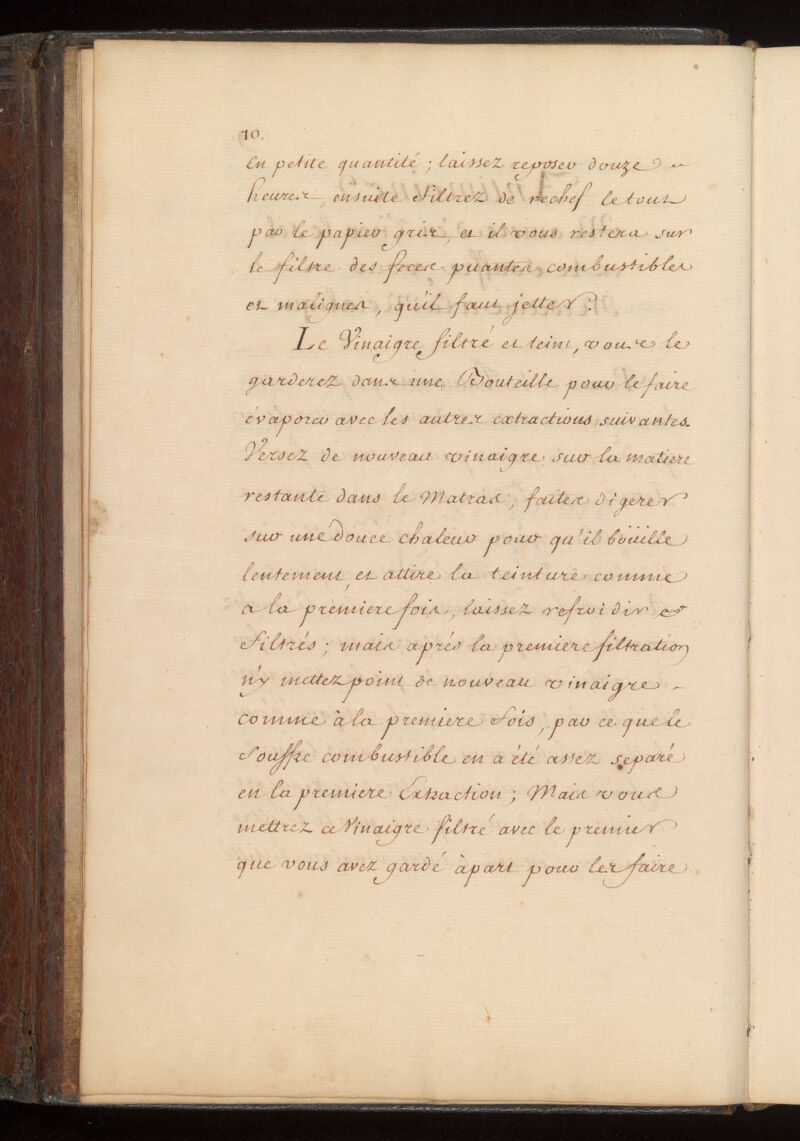 10.
en petite quantité ; laissez reposer douze
heures, ensuite filtrez de rechef le tout
par le papier gris, et il vous restera sur
le filtre des feces puantes, combustibles
et malignes, qu'il faut jetter.
Le Vinaigre filtré et teint, vous le
garderez dans une Bouteille pour le faire
évaporer avec les autres extractions suivantes.
Versez de nouveau vinaigre sur la matiere
restante dans le Matras, faites digerer
sur une douce chaleur pour qu'il boüille
lentement, et attire la teinture comme
a la premiere fois, laissez refroidir et
filtrés ; mais aprés la premiere filtration
n'y mettez point de nouveau vinaigre
comme à la premiere fois, par ce que le
souffre combustible en a été assez separé
en la premiere Extraction ; Mais vous
mettrez ce Vinaigre filtré avec le premier
que vous avez gardé àpart pour les faire